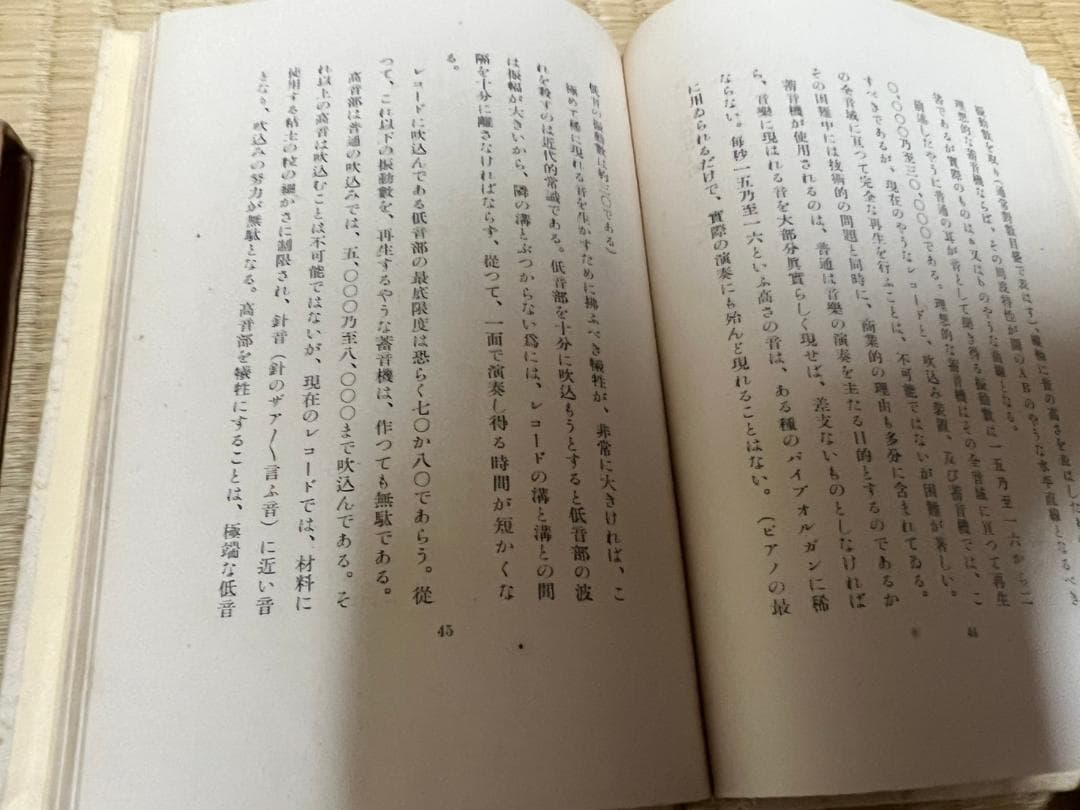 振動數を取りつ通常對數目盛で表はす)、縱軸に音の高さを表はした
理想的な蓄音機ならば、その周波特性が圖のABのやうな水平直線となるべき
筈であるが實際のものはa又はbのやうな曲線となる。
前述したやうに普通の耳が音として聞き得る振動數は一五乃至一六から二
〇、〇〇〇乃至三〇、〇〇〇である。理想的な蓄音機はその全音域に亙つて再生
すべきであるが、現在のやうなレコードと、吹込み裝置、及び蓄音機では、こ
の全音域に亙つて完全な再生を行ふことは、不可能ではないが困難が著しい。
その困難中には技術的の問題と同時に、商業的の理由も多分に含まれてゐる。
蓄音機が使用されるのは、普通は音樂の演奏を主たる目的とするのであるか
ら、音樂に現はれる音を大部分眞實らしく現せば、差支ないものとしなければ
ならない。毎秒一五乃至一六といふ高さの音は、ある種のパイプオルガンに稀
に用ゐられるだけで、實際の演奏にも殆んど現れることはない。(ピアノの最
44
低音の振動數は約三〇である)
極めて稀に現れる音を生かすために拂ふべき犧牲が、非常に大きければ、こ
れを殺すのは近代的常識である。低音部を十分に吹込もうとすると低音部の波
は振幅が大きいから、隣の溝とぶつからない爲には、レコードの溝と溝との間
隔を十分に離さなければならず、從つて、一面で演奏し得る時間が短かくな
る。
レコードに吹込んである低音部の最底限度は恐らく七〇か八〇であらう。從
つて、これ以下の振動數を、再生するやうな蓄音機は、作つても無駄である。
高音部は普通の吹込みでは、五、〇〇〇乃至八、〇〇〇まで吹込んである。そ
れ以上の高音は吹込むことは不可能ではないが、現在のレコードでは、材料に
使用する粘土の粒の細かさに制限され、針音(針のザア〱言ふ音)に近い音
となり、吹込みの努力が無駄となる。高音部を犧牲にすることは、極端な低音
45